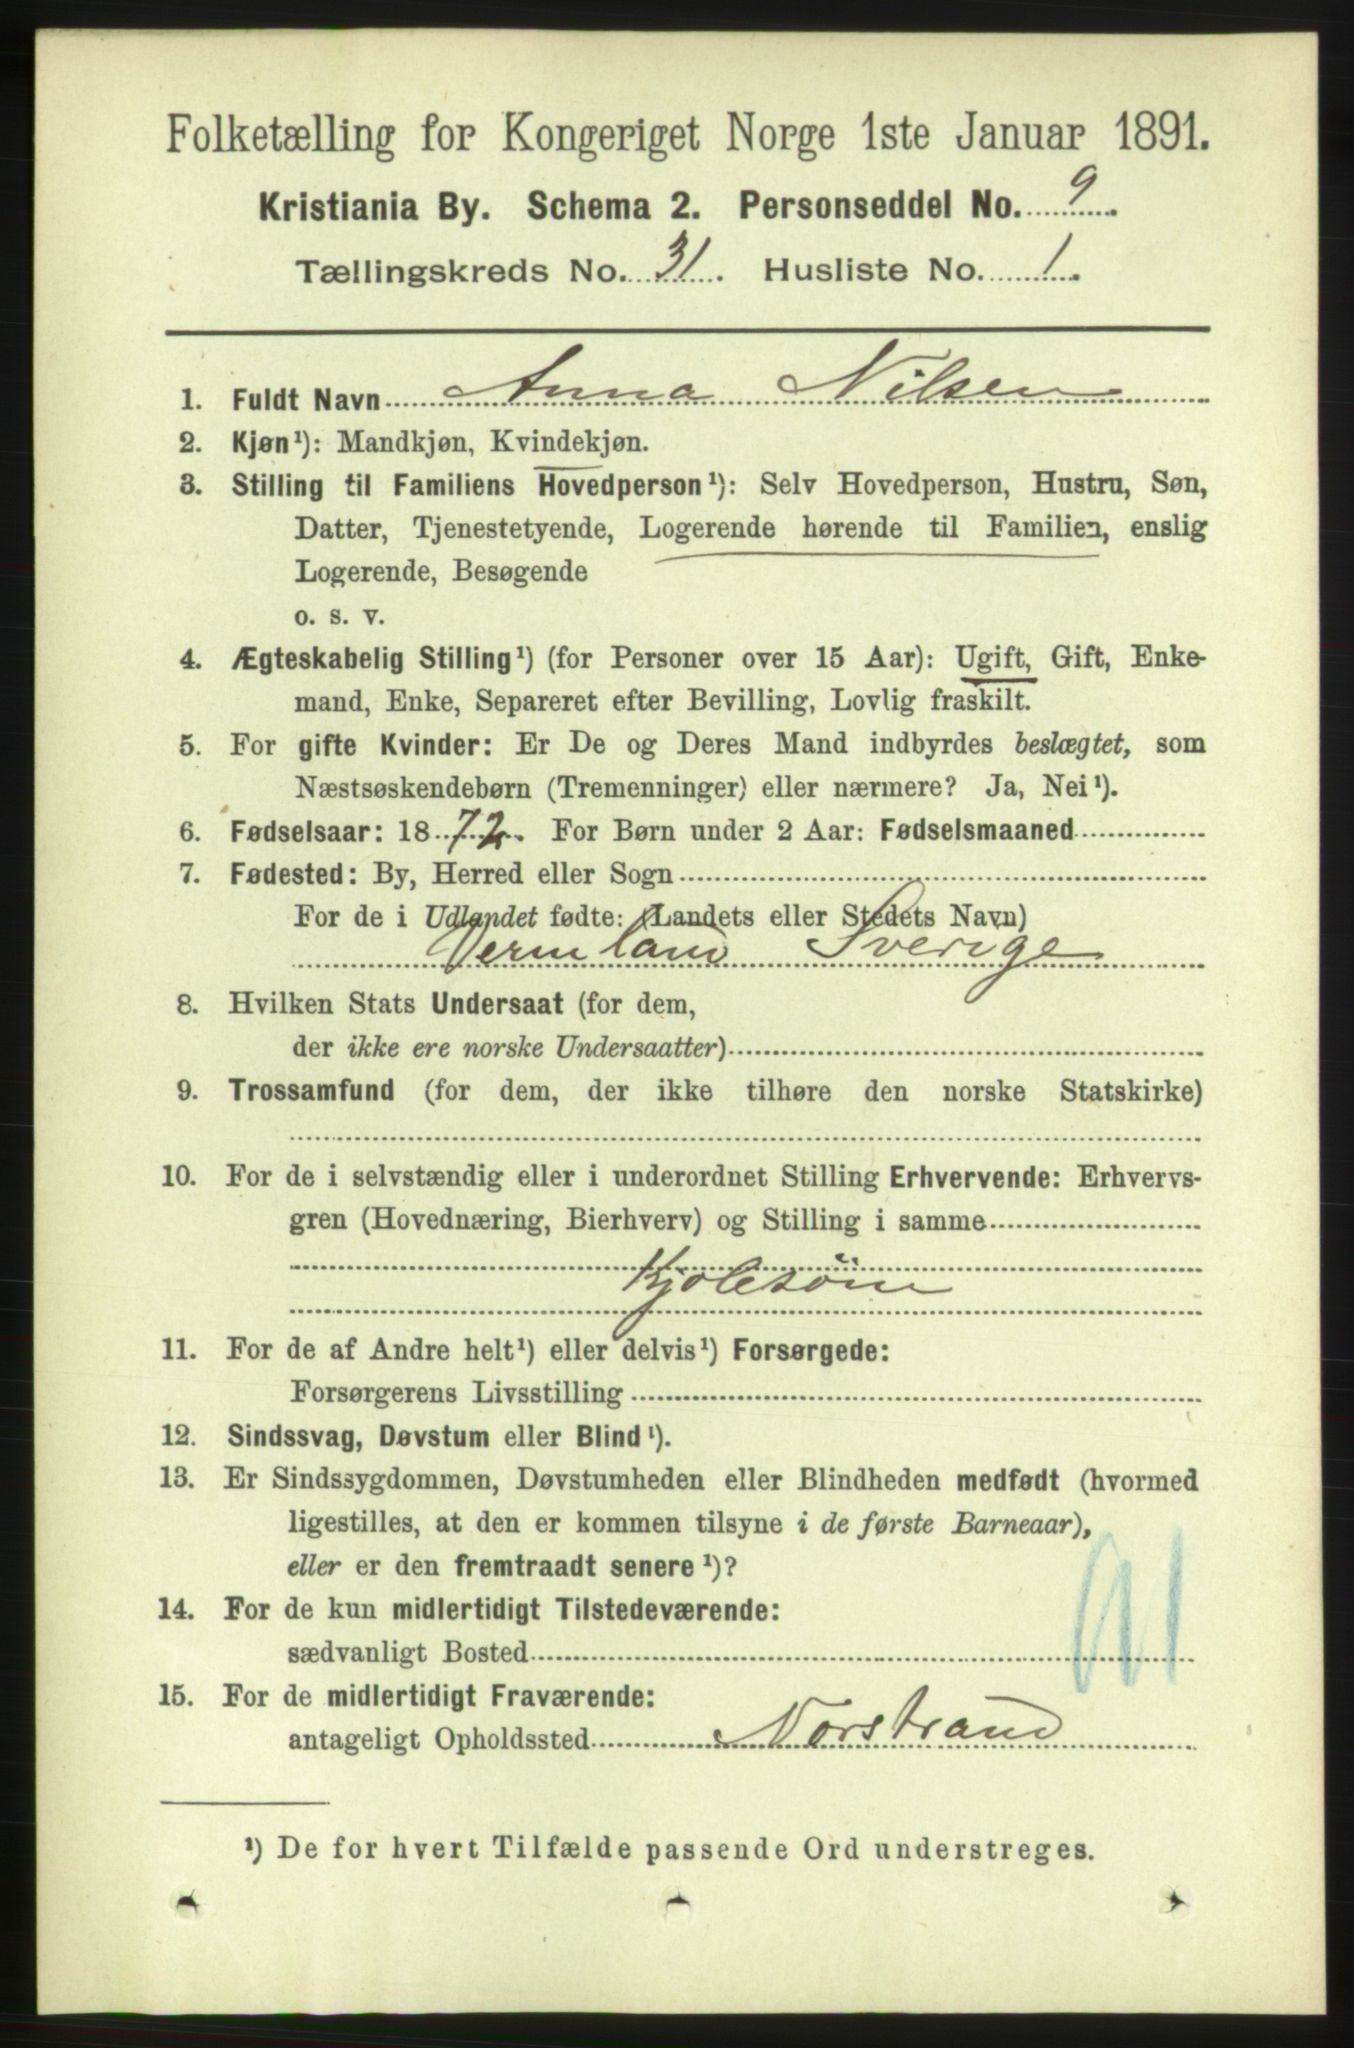 Folketælling for Kongeriget Norge 1ste Januar 1891.
Kristiania By. Schema 2. Personseddel No. 9
Tællingskreds No. 31. Husliste No. 1.
1. Fuldt Navn Anna Nilsen
2. Kjøn¹): Mandkjøn, Kvindekjøn.
3. Stilling til Familiens Hovedperson¹): Selv Hovedperson, Hustru, Søn,
Datter, Tjenestetyende, Logerende hørende til Familien, enslig
Logerende, Besøgende
o. s. v.
4. Ægteskabelig Stilling¹) (for Personer over 15 Aar): Ugift, Gift, Enke-
mand, Enke, Separeret efter Bevilling, Lovlig fraskilt.
5. For gifte Kvinder: Er De og Deres Mand indbyrdes beslægtet, som
Næstsøskendebørn (Tremenninger) eller nærmere? Ja, Nei¹).
6. Fødselsaar: 1872. For Børn under 2 Aar: Fødselsmaaned
7. Fødested: By, Herred eller Sogn
For de i Udlandet fødte: (Landets eller Stedets Navn)
Vermland Sverige
8. Hvilken Stats Undersaat (for dem,
der ikke ere norske Undersaatter)
9. Trossamfund (for dem, der ikke tilhøre den norske Statskirke)
10. For de i selvstændig eller i underordnet Stilling Erhvervende: Erhvervs-
gren (Hovednæring, Bierhverv) og Stilling i samme
Kjolesöm
11. For de af Andre helt¹) eller delvis¹) Forsørgede:
Forsørgerens Livsstilling
12. Sindssvag, Døvstum eller Blind¹).
13. Er Sindssygdommen, Døvstumheden eller Blindheden medfødt (hvormed
ligestilles, at den er kommen tilsyne i de første Barneaar),
eller er den fremtraadt senere¹)?
14. For de kun midlertidigt Tilstedeværende:
sædvanligt Bosted
15. For de midlertidigt Fraværende:
antageligt Opholdssted Norstrand
¹) De for hvert Tilfælde passende Ord understreges.